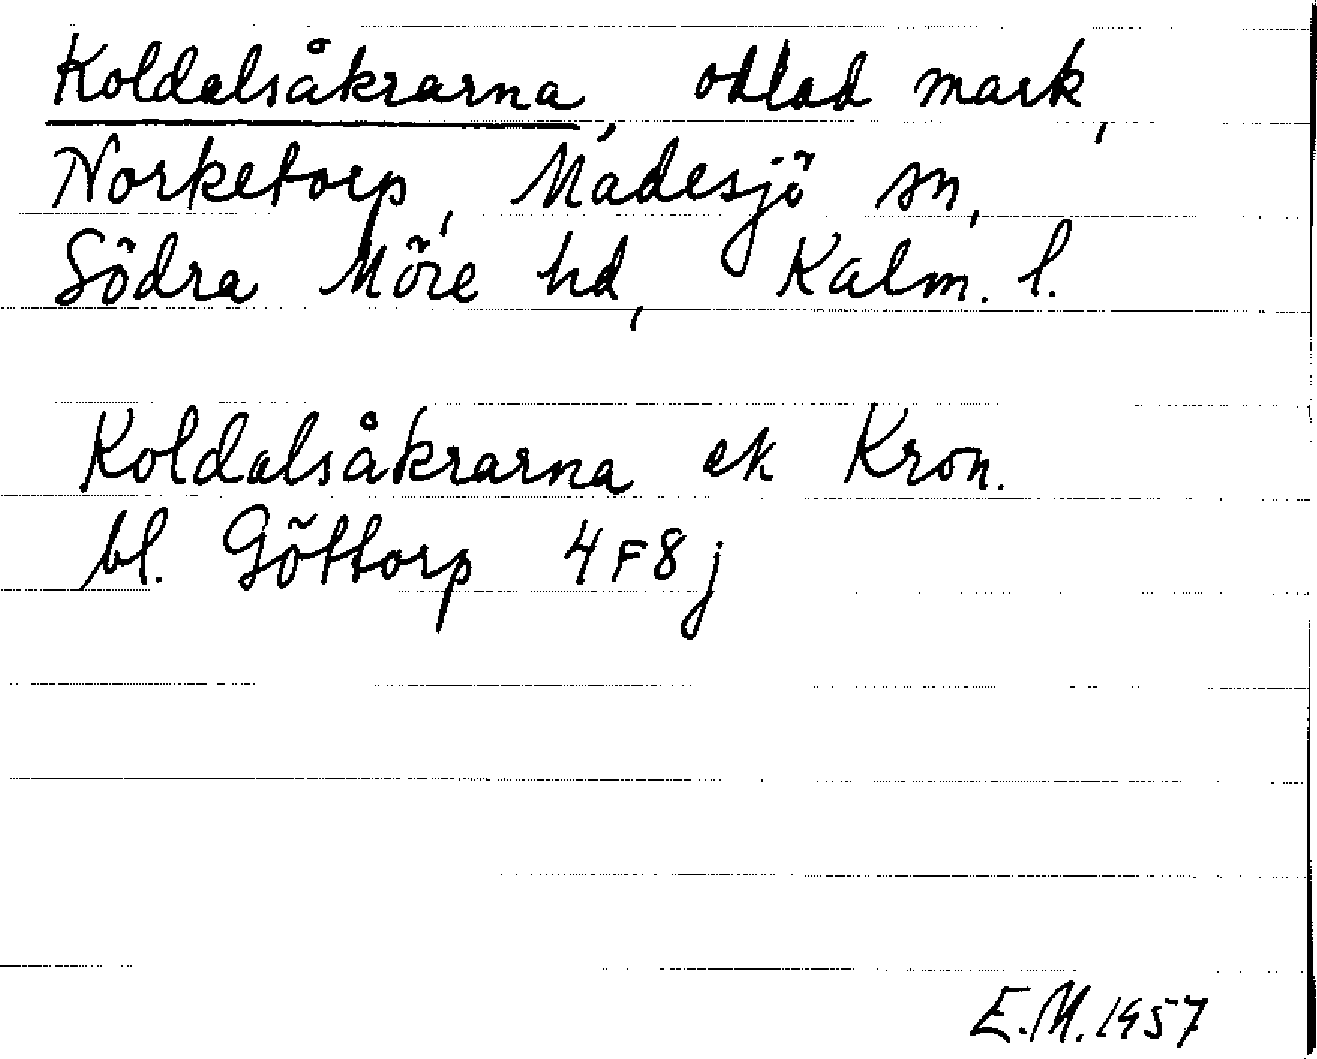 Koldalsåkrarna, odlad mark,
Norketorp, Madesjö sn,
Södra Möre hd, Kalm. l.
Koldalsåkrarna ek Kron.
bl. Göttorp 4F8j
E.M. 1957